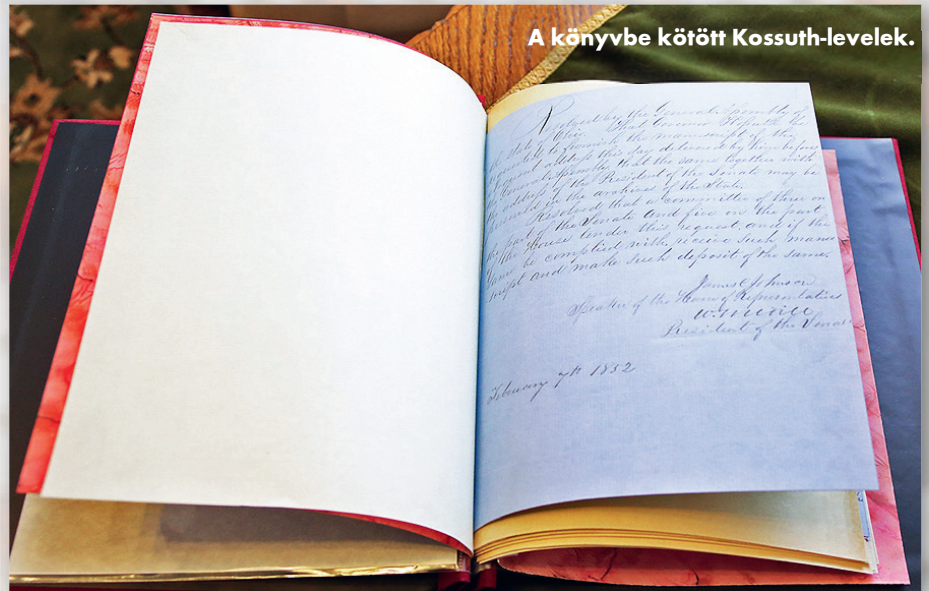 A könyvbe kötött Kossuth-levelek.
Resolved by the General Assembly of
the State of Ohio. That Governor Kossuth be
requested to furnish the manuscript of the
eloquent address this day delivered by him before
the General Assembly that the same together with
the address of the President of the Senate may be
in the archives of the State.
Resolved that a committee of three on
the part of the Senate and five on the part
of the House tender this request and if the
same be complied with receive such manu
script and make such deposit of the same.
James C Johnson
Speaker of the House of Representatives
President of the Senate
February 7th 1852